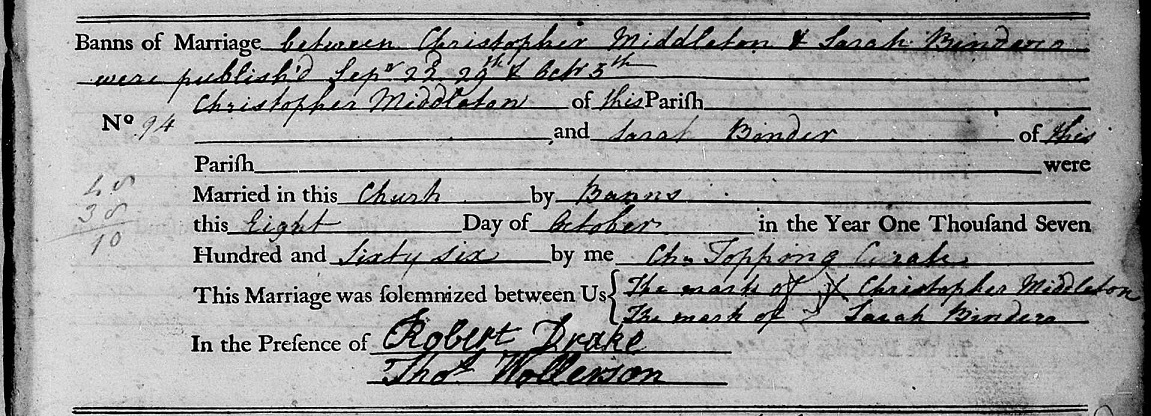 Banns of Marriage between Christopher Middleton & Sarah Binders
were publish'd Sepr 22d 29th & Octr 5th
Christopher Middleton of this Pariſh
No 94 and Sarah Binder of this
Pariſh were
Married in this Church by Banns
this Eight Day of October in the Year One Thouſand Seven
Hundred and Sixty six by me Chr Topping Curate
This Marriage was ſolemnized between Us { The mark of X Christopher Middleton
The mark of Sarah Binders
In the Preſence of Robert Drake
Thos Wollerson